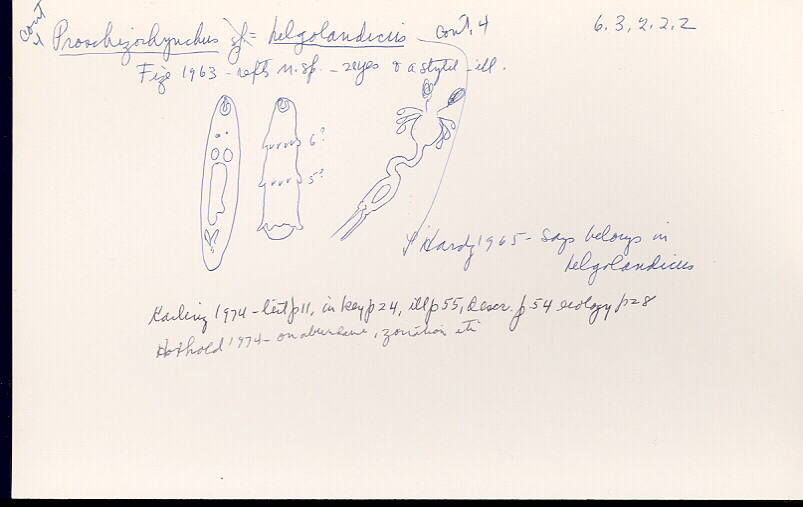 cont 4 Proschizorhynchus sp = helgolandicus cont. 4 6.3.2.2.2
Fize 1963 - refs n. sp. - 2 eyes & a stylet - ill.
6?
5?
L'Hardy 1965 - says belongs in
helgolandicus
Karling 1974 - list p11, in key p24, ill p55, descr. p54 ecology p28
1974 - on abundance, zonation etc